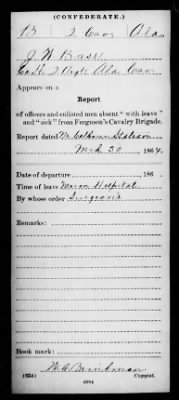 (CONFEDERATE.)
B 2 Cav Ala
J. W. Bass
Capt. 2 Regt Ala Cav
Appears on a
Report
of officers and enlisted men absent "with leave"
and "sick" from Ferguson's Cavalry Brigade.
Report dated Station
Mch 20, 1864.
Date of departure, 186 .
Time of leave Macon Hospital
By whose order Surgeons
Remarks:
Book mark:
(654) Copyist.